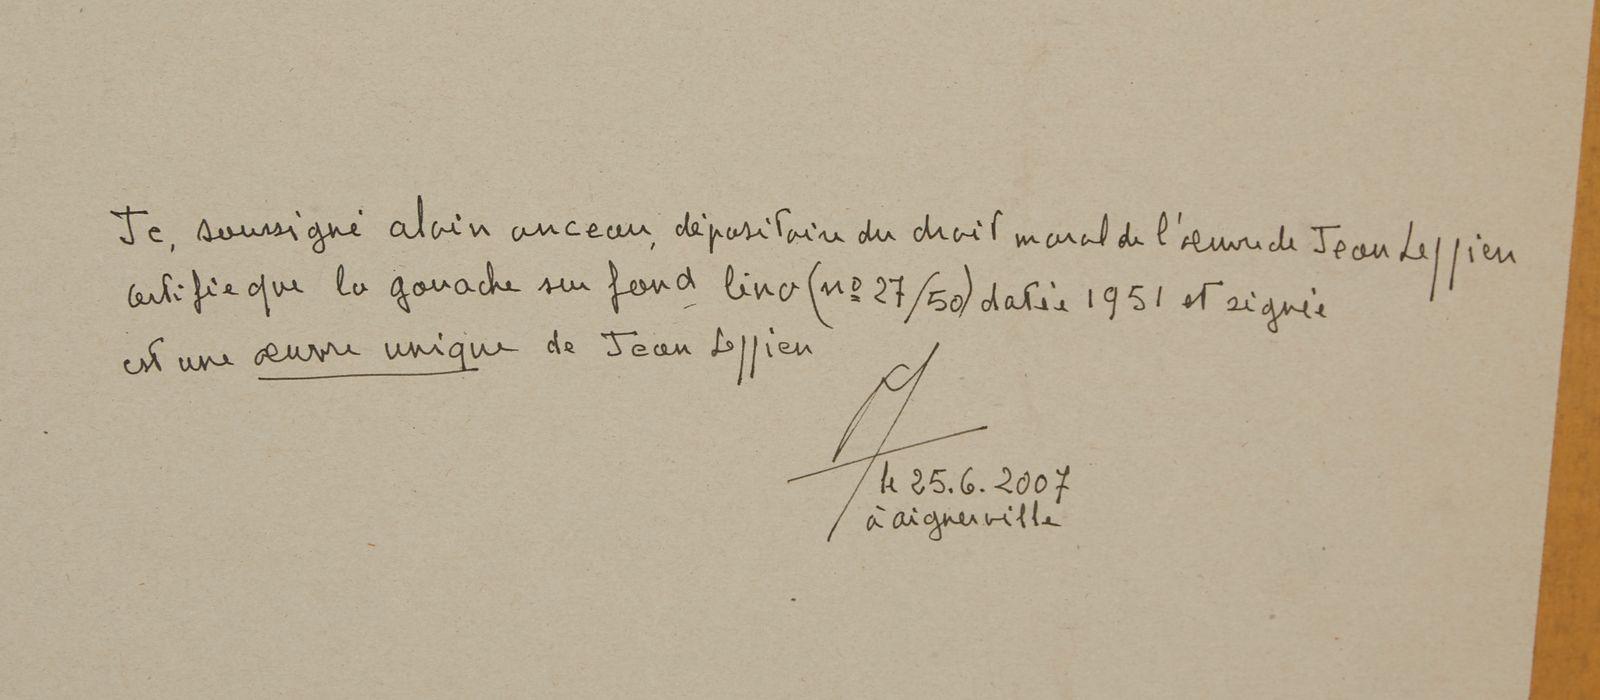 Je, soussigné alain anceau, dépositaire du droit moral de l'œuvre de Jean Leppien
certifie que la gouache sur fond lino (nº 27/50) datée 1951 et signée
est une œuvre unique de Jean Leppien
le 25.6.2007
à aignerville